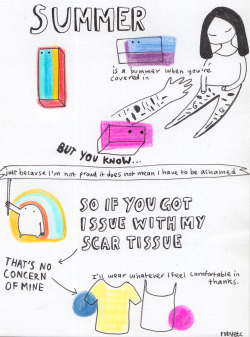 SUMMER
is a bummer when you're
covered in
BUT YOU KNOW...
just because I'm not proud it does not mean I have to be ashamed
SO IF YOU GOT
ISSUE WITH MY
SCAR TISSUE
THAT'S NO
CONCERN
OF MINE
I'll wear whatever I feel comfortable in
thanks.